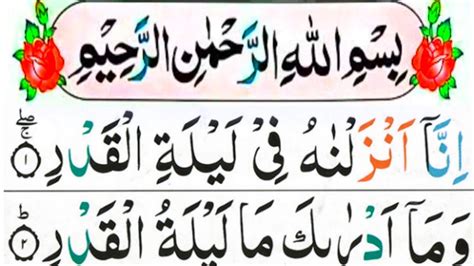 بِسْمِ اللهِ الرَّحْمٰنِ الرَّحِيْمِ
اِنَّاۤ اَنْزَلْنٰهُ فِیْ لَیْلَةِ الْقَدْرِ ۚۖ ۝۱
وَمَاۤ اَدْرٰىكَ مَا لَیْلَةُ الْقَدْرِ ؕ ۝۲